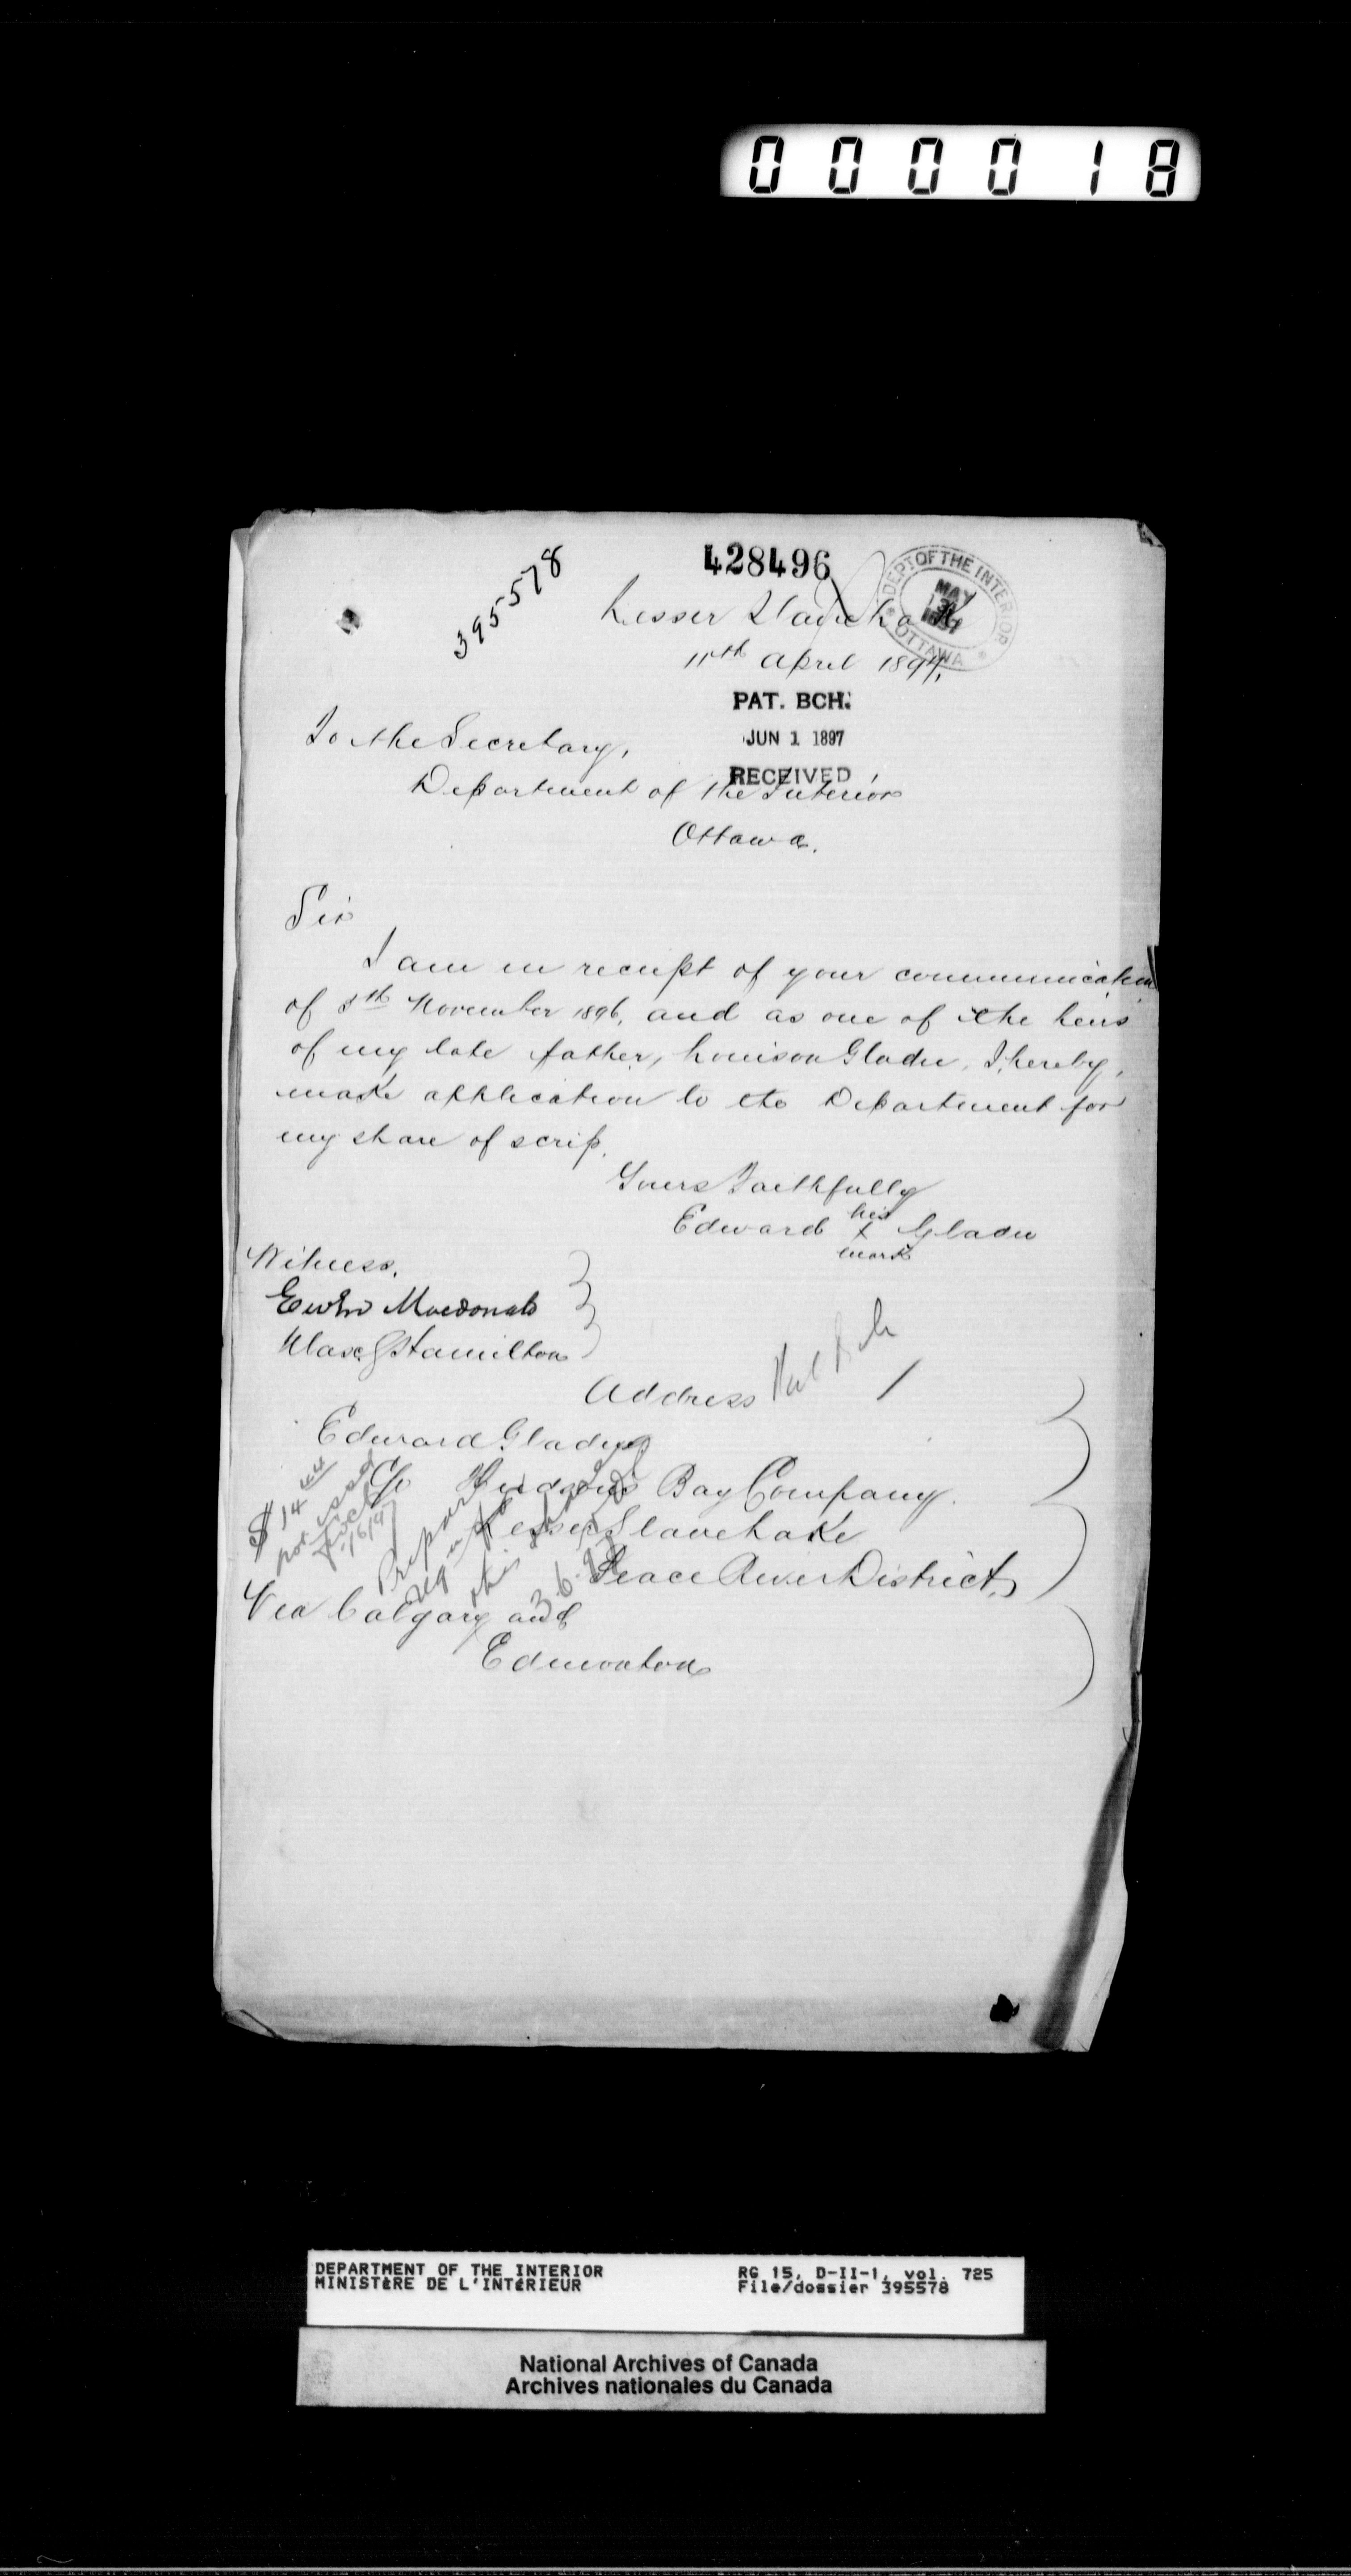 000018
428496
395578
DEPT OF THE INTERIOR
MAY
1897
OTTAWA
Lesser Slave Lake
11th April 1897,
PAT. BCH.
JUN 1 1897
RECEIVED
To the Secretary,
Department of the Interior
Ottawa.
Sir
I am in receipt of your communication
of 5th November 1896, and as one of the heirs
of my late father, Louison Gladu, I hereby,
make application to the Department for
my share of scrip.
Yours Faithfully
Edward his x mark Gladu
Witness.
Macdonald
Max Hamilton
Address
Edward Gladu
C/o Hudson's Bay Company.
Lesser Slave Lake
Peace River District,
Via Calgary and
Edmonton
$14 44
Prepare
this
3.6.97
DEPARTMENT OF THE INTERIOR
MINISTÈRE DE L'INTÉRIEUR
RG 15, D-II-1, vol. 725
File/dossier 395578
National Archives of Canada
Archives nationales du Canada